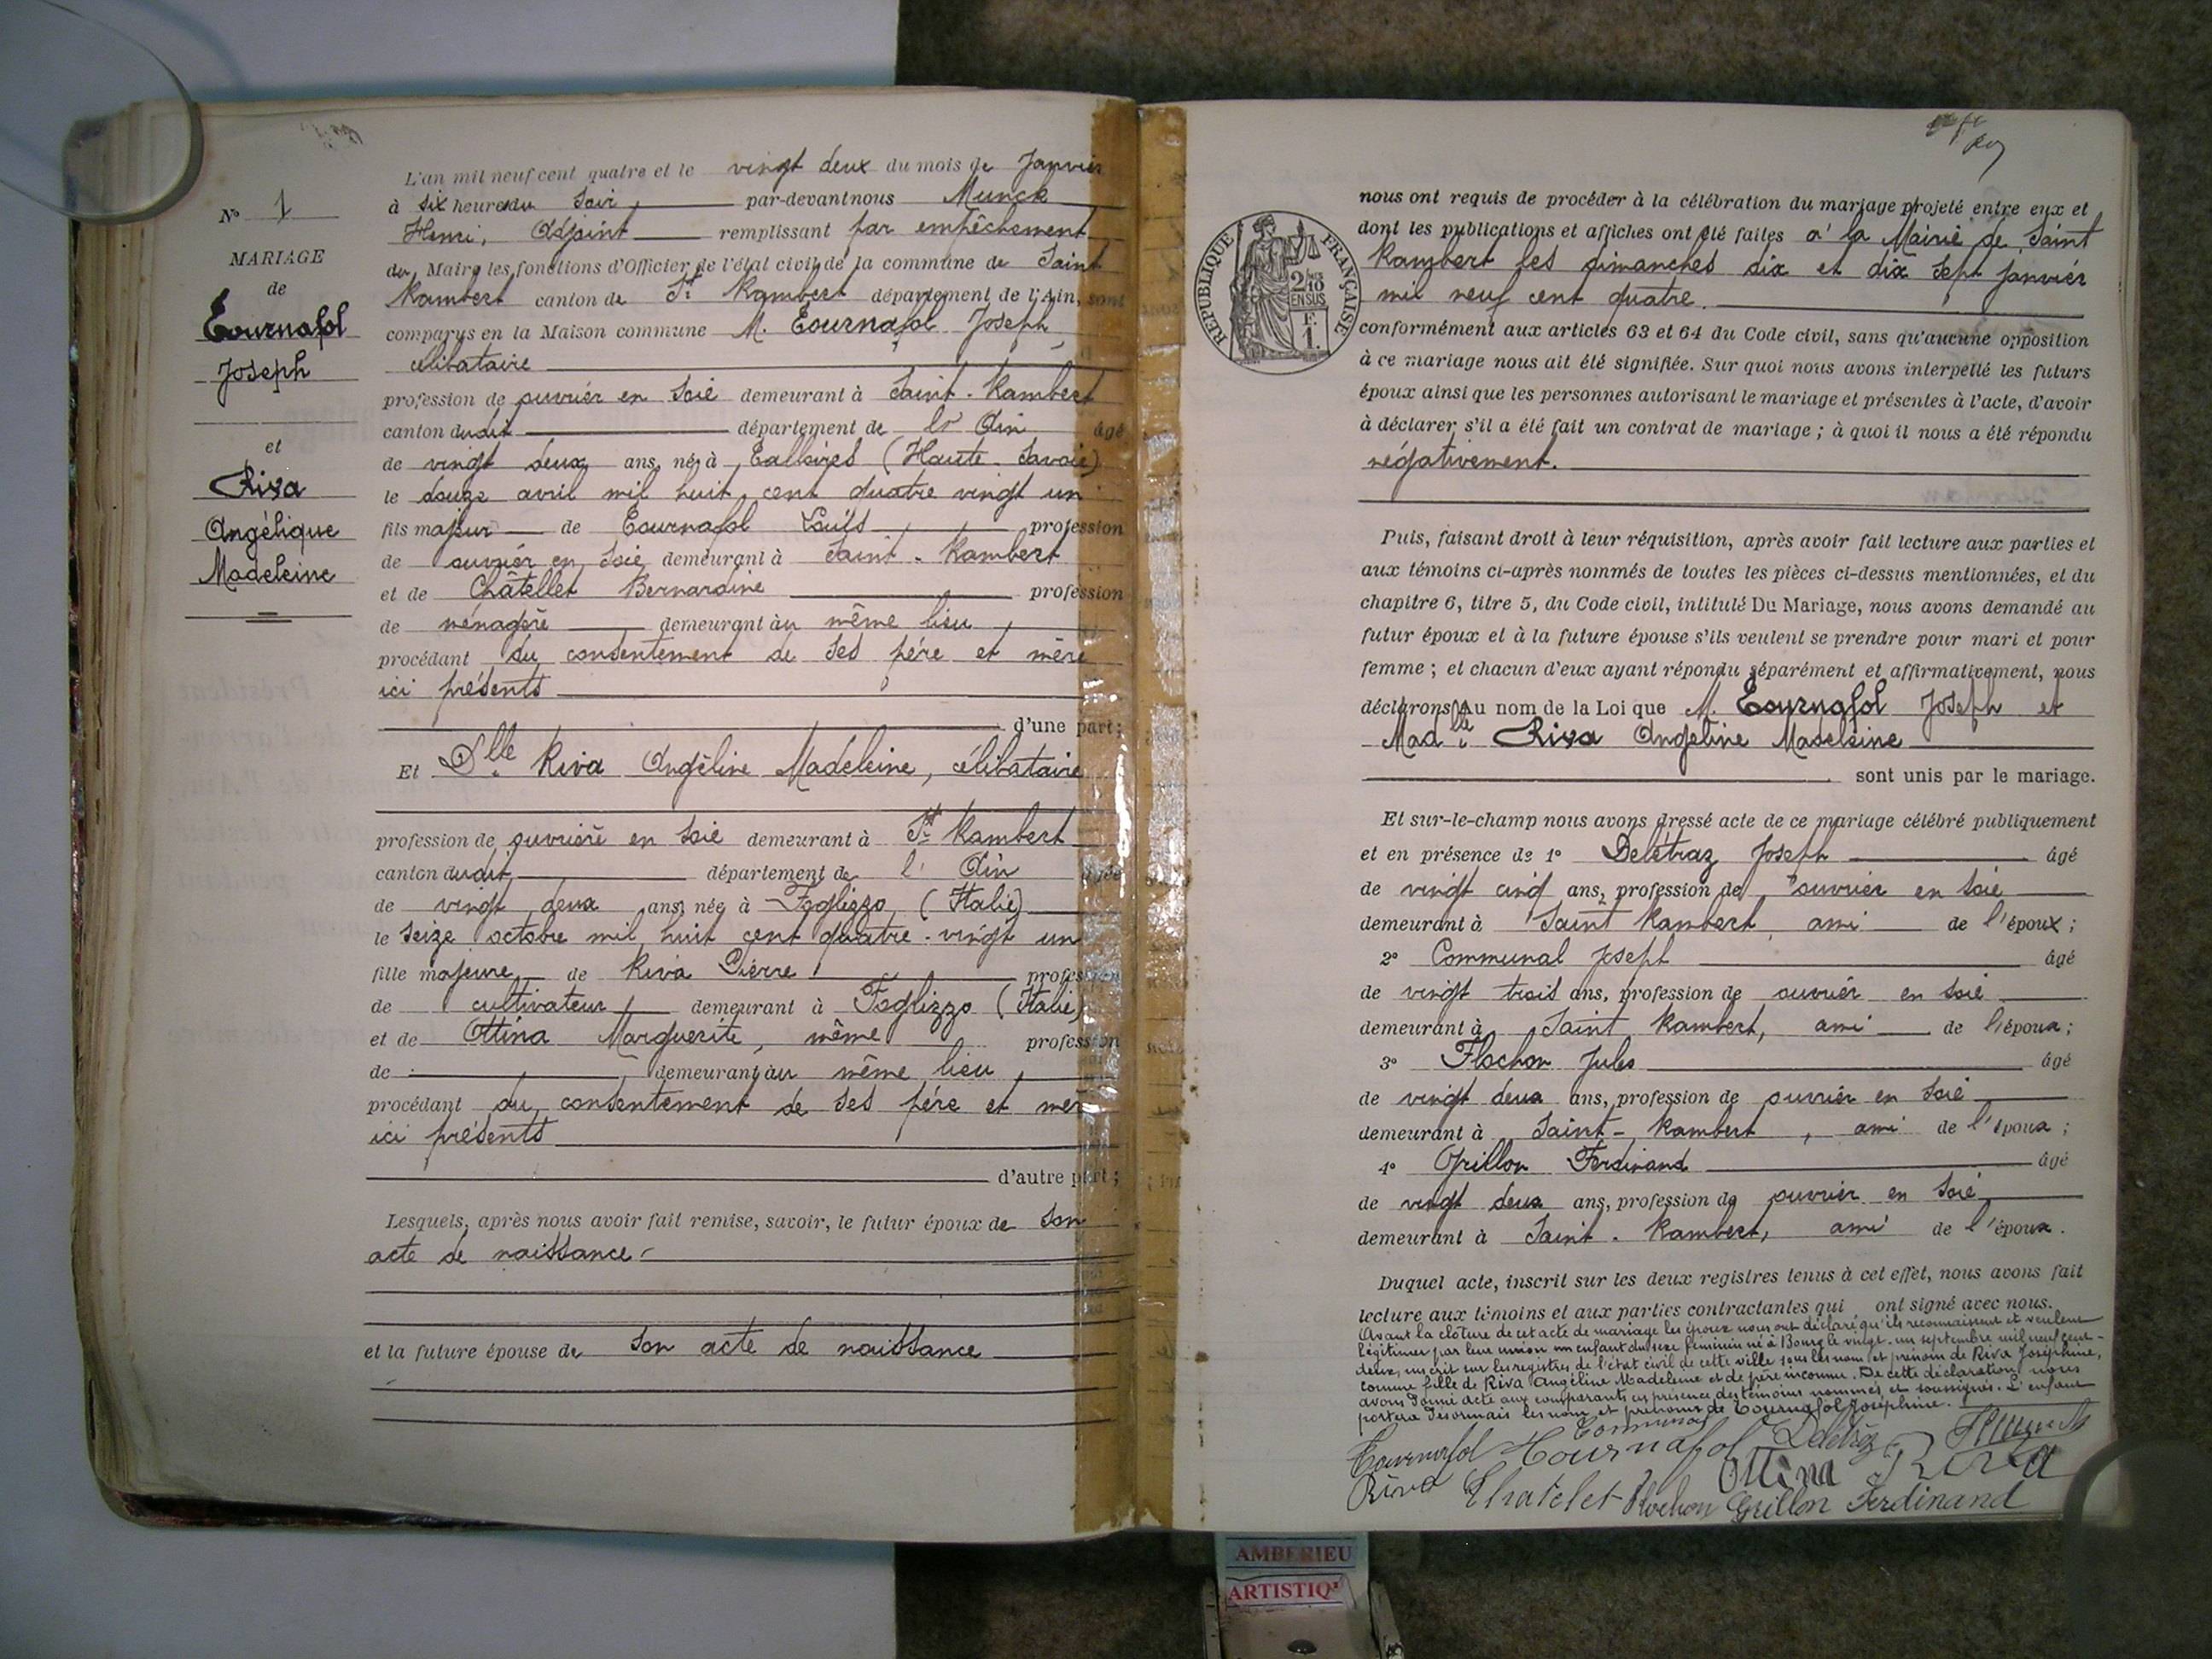 N° 1
MARIAGE
de
Tournafol
Joseph
et
Riva
Angélique
Madeleine
L'an mil neuf cent quatre et le vingt deux du mois de Janvier
à six heures du soir, par-devant nous Munck
Henri, Adjoint remplissant par empêchement
du Maire les fonctions d'Officier de l'état civil de la commune de Saint
Rambert canton de St Rambert département de l'Ain, sont
comparus en la Maison commune M. Tournafol Joseph,
célibataire
profession de ouvrier en soie demeurant à Saint-Rambert
canton dudit département de l'Ain âgé
de vingt deux ans, né à Talloires (Haute-Savoie)
le douze avril mil huit cent quatre vingt un
fils majeur de Tournafol Louis, profession
de ouvrier en soie, demeurant à Saint-Rambert
et de Châtellet Bernardine profession
de ménagère, demeurant au même lieu,
procédant du consentement de ses père et mère
ici présents
d'une part;
Et Dlle Riva Angéline Madeleine, célibataire
profession de ouvrière en soie demeurant à St Rambert
canton dudit, département de l'Ain âgée
de vingt deux ans, née à Foglizzo (Italie)
le seize octobre mil huit cent quatre-vingt un
fille majeure de Riva Pierre profession
de cultivateur, demeurant à Foglizzo (Italie)
et de Ottina Marguerite, même profession
de demeurant au même lieu,
procédant du consentement de ses père et mère
ici présents
d'autre part;
Lesquels, après nous avoir fait remise, savoir, le futur époux de son
acte de naissance
et la future épouse de son acte de naissance
nous ont requis de procéder à la célébration du mariage projeté entre eux et
dont les publications et affiches ont été faites à la Mairie de Saint
Rambert les dimanches dix et dix sept janvier
mil neuf cent quatre.
REPUBLIQUE FRANÇAISE
2/10
EN SUS
F.
1.
conformément aux articles 63 et 64 du Code civil, sans qu'aucune opposition
à ce mariage nous ait été signifiée. Sur quoi nous avons interpellé les futurs
époux ainsi que les personnes autorisant le mariage et présentes à l'acte, d'avoir
à déclarer s'il a été fait un contrat de mariage; à quoi il nous a été répondu
négativement.
Puis, faisant droit à leur réquisition, après avoir fait lecture aux parties et
aux témoins ci-après nommés de toutes les pièces ci-dessus mentionnées, et du
chapitre 6, titre 5, du Code civil, intitulé Du Mariage, nous avons demandé au
futur époux et à la future épouse s'ils veulent se prendre pour mari et pour
femme; et chacun d'eux ayant répondu séparément et affirmativement, nous
déclarons Au nom de la Loi que M. Tournafol Joseph et
Madlle Riva Angéline Madeleine
sont unis par le mariage.
Et sur-le-champ nous avons dressé acte de ce mariage célébré publiquement
et en présence de 1° Delétraz Joseph âgé
de vingt cinq ans, profession de ouvrier en soie
demeurant à Saint Rambert, ami de l'époux;
2° Communal Joseph âgé
de vingt trois ans, profession de ouvrier en soie
demeurant à Saint Rambert, ami de l'époux;
3° Flochon Jules âgé
de vingt deux ans, profession de ouvrier en soie
demeurant à Saint-Rambert, ami de l'époux;
4° Grillon Ferdinand âgé
de vingt deux ans, profession de ouvrier en soie
demeurant à Saint-Rambert, ami de l'époux.
Duquel acte, inscrit sur les deux registres tenus à cet effet, nous avons fait
lecture aux témoins et aux parties contractantes qui ont signé avec nous.
Avant la clôture de cet acte de mariage les époux nous ont déclaré qu'ils reconnaissent et veulent
légitimer par leur union un enfant du sexe féminin né à Bourg le vingt-un septembre mil neuf cent-
deux, inscrit sur les registres de l'état civil de cette ville sous les nom et prénom de Riva Joséphine,
comme fille de Riva Angéline Madeleine et de père inconnu. De cette déclaration nous
avons donné acte aux comparants en présence des témoins nommés et soussignés. L'enfant
portera désormais les nom et prénoms de Tournafol Joséphine.
Communal
Tournafol Tournafol Delétraz HMunck
Riva Chatelet Flochon Ottina Riva
Grillon Ferdinand
AMBERIEU
ARTISTIQ